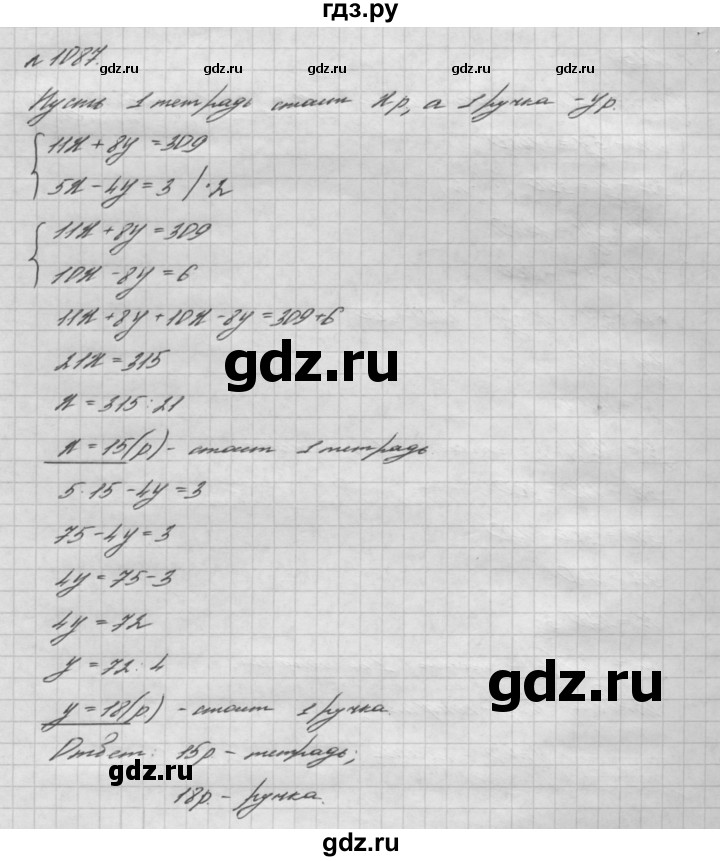 гдз.ру
№ 1087.
gdz.ru gdz.ru gdz.ru gdz.ru
Пусть 1 тетрадь стоит x р, а 1 ручка - y р.
11x + 8y = 309
5x - 4y = 3 / · 2
11x + 8y = 309
10x - 8y = 6
11x + 8y + 10x - 8y = 309 + 6
21x = 315
gdz.ru
x = 315 : 21
x = 15(р) - стоит 1 тетрадь
5 · 15 - 4y = 3
75 - 4y = 3
4y = 75 - 3
4y = 72
y = 72 : 4
gdz.ru
y = 18(р) - стоит 1 ручка.
Ответ: 15р - тетрадь;
gdz.ru
18р. - ручка.
gdz.ru